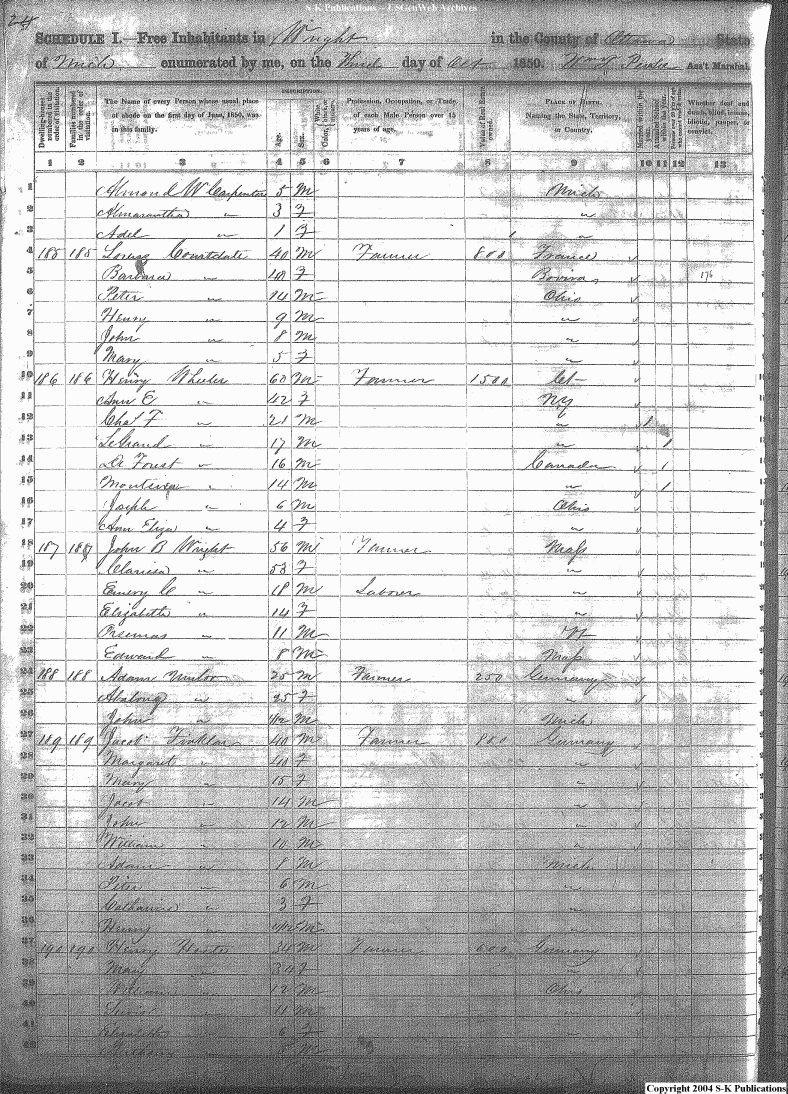 S-K Publications – USGenWeb Archives
24
SCHEDULE I.—Free Inhabitants in Wright in the County of Ottawa State
of Mich enumerated by me, on the Third day of Oct 1850. Wm Ass't Marshal.
Dwelling-houses numbered in the order of visitation.
Families numbered in the order of visitation.
The Name of every Person whose usual place of abode on the first day of June, 1850, was in this family.
DESCRIPTION.
Age.
Sex.
Color, White, black, or mulatto.
Profession, Occupation, or Trade of each Male Person over 15 years of age.
Value of Real Estate owned.
PLACE OF BIRTH. Naming the State, Territory, or Country.
Married within the year.
Attended School within the year.
Whether deaf and dumb, blind, insane, idiotic, pauper, or convict.
1 2 3 4 5 6 7 8 9 10 11 12 13
1 Almond W Carpenter 5 M Mich
2 Almarantha " 3 F "
3 Adel " 1 F "
4 185 185 40 M Farmer 800 France
5 Barbara " F 176
6 Peter " 14 M Ohio
7 Henry " 9 M "
8 John " 8 M "
9 Mary " 5 F "
10 186 186 Henry Wheeler 60 M Farmer 1500 Ct
11 Ann E " 42 F NY
12 Chas F " 21 M " 1
13 LeGrand " 17 M " 1
14 De Forest " 16 M Canada 1
15 " 14 M " 1
16 Joseph " 6 M Ohio
17 Ann Eliza " 4 F "
18 187 187 John B Wright 56 M Farmer Mass
19 Clarissa " 53 F "
20 Emery C " 18 M Laborer "
21 Elizabeth " 14 F "
22 " 11 M
23 Edward " 8 M Mass
24 188 188 Adam 25 M Farmer 250 Germany
25 " 25 F "
26 John " M Mich
27 189 189 Jacob Finkler 40 M Farmer 800 Germany
28 Margaret " 40 F "
29 Mary " 15 F "
30 Jacob " 14 M "
31 John " 12 M "
32 William " 10 M "
33 Adam " 8 M Mich
34 Peter " 6 M "
35 Catharine " 3 F "
36 Henry " M "
37 190 190 Henry 34 M Farmer 600 Germany
38 Mary " 34 F "
39 William " 12 M Ohio
40 " 11 M "
41 Elizabeth " 6 F "
42 Anthony " M "
Copyright 2004 S-K Publications